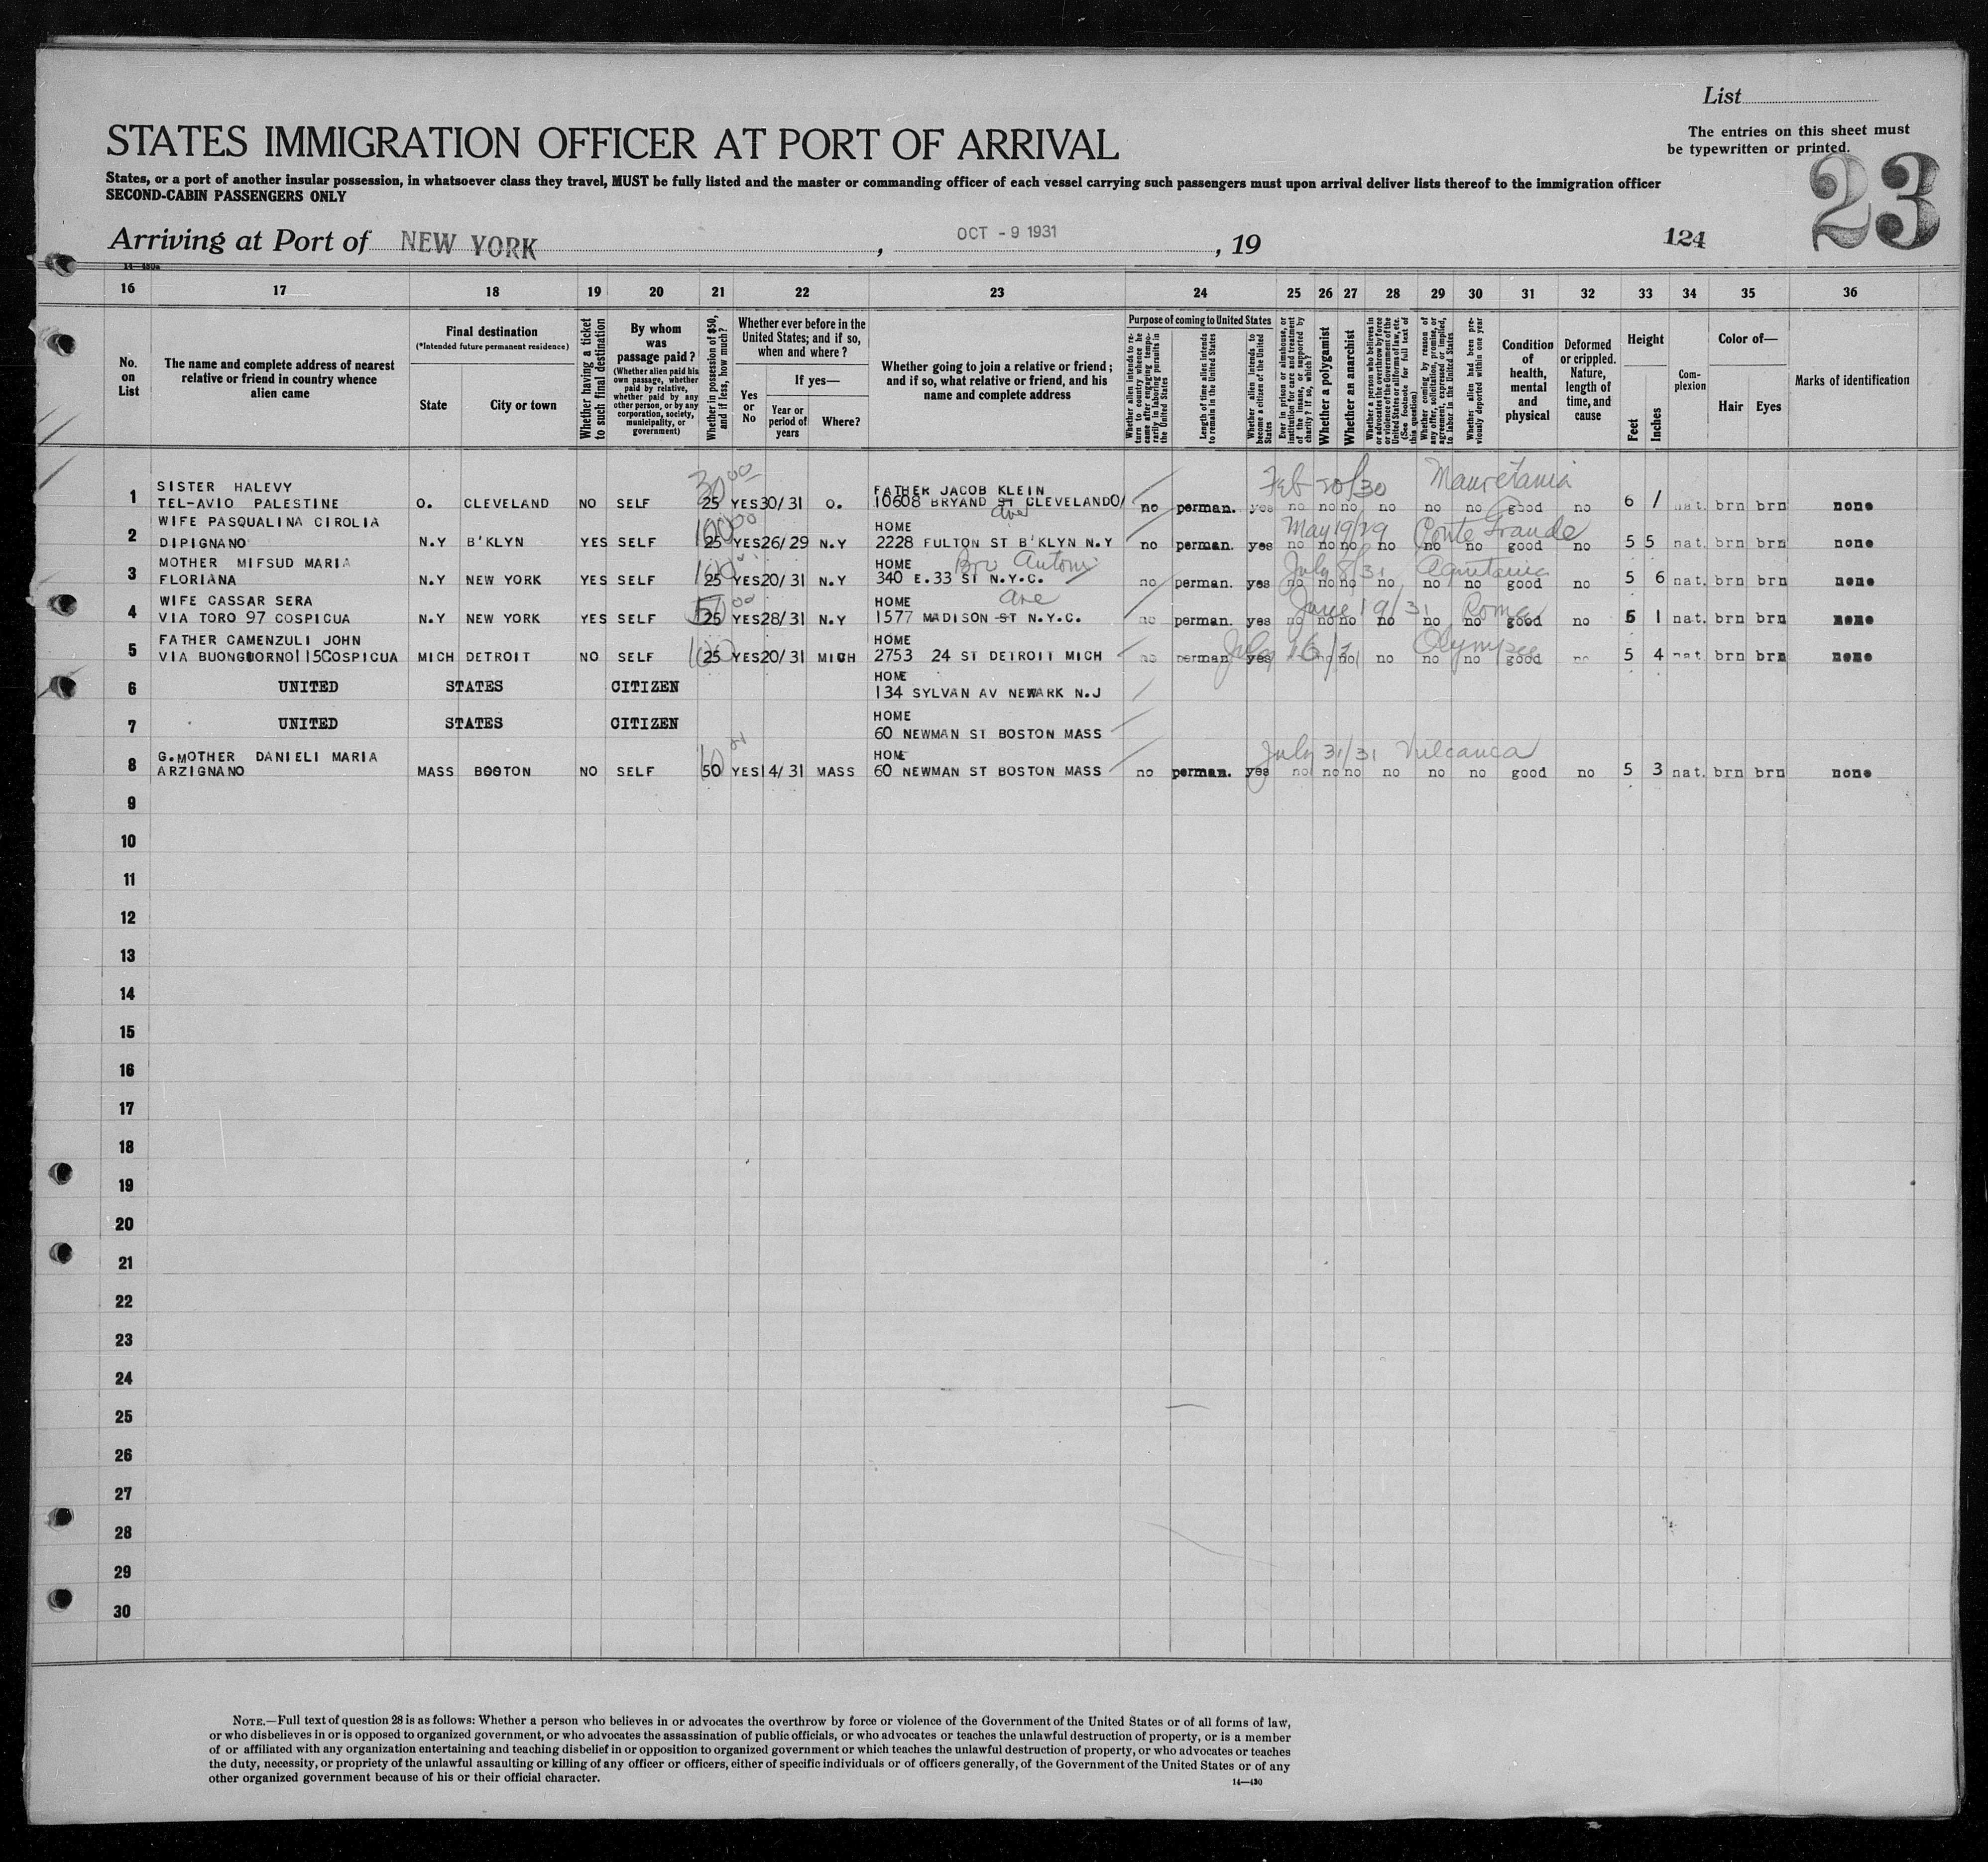 List
STATES IMMIGRATION OFFICER AT PORT OF ARRIVAL
The entries on this sheet must
be typewritten or printed.
23
States, or a port of another insular possession, in whatsoever class they travel, MUST be fully listed and the master or commanding officer of each vessel carrying such passengers must upon arrival deliver lists thereof to the immigration officer
SECOND-CABIN PASSENGERS ONLY
Arriving at Port of NEW YORK, OCT - 9 1931, 19
124
14—430a
16 17 18 19 20 21 22 23 24 25 26 27 28 29 30 31 32 33 34 35 36
No. on List
The name and complete address of nearest relative or friend in country whence alien came
Final destination
(*Intended future permanent residence)
State
City or town
Whether having a ticket to such final destination
By whom was passage paid?
(Whether alien paid his own passage, whether paid by relative, whether paid by any other person, or by any corporation, society, municipality, or government)
Whether in possession of $50, and if less, how much?
Whether ever before in the United States; and if so, when and where?
Yes or No
If yes—
Year or period of years
Where?
Whether going to join a relative or friend; and if so, what relative or friend, and his name and complete address
Purpose of coming to United States
Whether alien intends to return to country whence he came after engaging temporarily in laboring pursuits in the United States
Length of time alien intends to remain in the United States
Whether alien intends to become a citizen of the United States
Ever in prison or almshouse, or institution for care and treatment of the insane, or supported by charity? If so, which?
Whether a polygamist
Whether an anarchist
Whether a person who believes in or advocates the overthrow by force or violence of the Government of the United States or all forms of law, etc. (See footnote for full text of this question)
Whether coming by reason of any offer, solicitation, promise, or agreement, expressed or implied, to labor in the United States
Whether alien had been previously deported within one year
Condition of health, mental and physical
Deformed or crippled. Nature, length of time, and cause
Height
Feet
Inches
Complexion
Color of—
Hair
Eyes
Marks of identification
30 00 Feb 20/30 Mauretania
SISTER HALEVY FATHER JACOB KLEIN
1 TEL-AVIO PALESTINE O. CLEVELAND NO SELF 25 YES 30/31 O. 10608 BRYAND ST CLEVELAND O/ no perman. yes no no no no no no good 6 1 nat. brn brn none
Ave
WIFE PASQUALINA CIROLIA 100 00 HOME May 19/29 Conte Grande
2 DIPIGNANO N.Y B'KLYN YES SELF 25 YES 26/29 N.Y 2228 FULTON ST B'KLYN N.Y no perman. yes no no no no no no good no 5 5 nat. brn brn none
MOTHER MIFSUD MARIA 100 HOME Bro Antoni July 8/31 Aquitania
3 FLORIANA N.Y NEW YORK YES SELF 25 YES 20/31 N.Y 340 E.33 ST N.Y.C. no perman. yes no no no no no no good no 5 6 nat. brn brn none
WIFE CASSAR SERA 00 HOME Ave June 19/31 Roma
4 VIA TORO 97 COSPICUA N.Y NEW YORK YES SELF 25 YES 28/31 N.Y 1577 MADISON ST N.Y.C. no perman. yes no no no no no no good no 5 1 nat. brn brn none
FATHER CAMENZULI JOHN 100 HOME July Olympic
5 VIA BUONGUORNO 115 COSPICUA MICH DETROIT NO SELF 25 YES 20/31 MICH 2753 24 ST DETROIT MICH no perman yes no no no no no no good no 5 4 nat brn brn none
HOME
6 UNITED STATES CITIZEN 134 SYLVAN AV NEWARK N.J
HOME
7 UNITED STATES CITIZEN 60 NEWMAN ST BOSTON MASS
G.MOTHER DANIELI MARIA HOME July 31/31 Vulcania
8 ARZIGNANO MASS BOSTON NO SELF 50 YES 14/31 MASS 60 NEWMAN ST BOSTON MASS no perman. yes no no no no no no good no 5 3 nat. brn brn none
9
10
11
12
13
14
15
16
17
18
19
20
21
22
23
24
25
26
27
28
29
30
NOTE.—Full text of question 28 is as follows: Whether a person who believes in or advocates the overthrow by force or violence of the Government of the United States or of all forms of law,
or who disbelieves in or is opposed to organized government, or who advocates the assassination of public officials, or who advocates or teaches the unlawful destruction of property, or is a member
of or affiliated with any organization entertaining and teaching disbelief in or opposition to organized government or which teaches the unlawful destruction of property, or who advocates or teaches
the duty, necessity, or propriety of the unlawful assaulting or killing of any officer or officers, either of specific individuals or of officers generally, of the Government of the United States or of any
other organized government because of his or their official character.
14—430